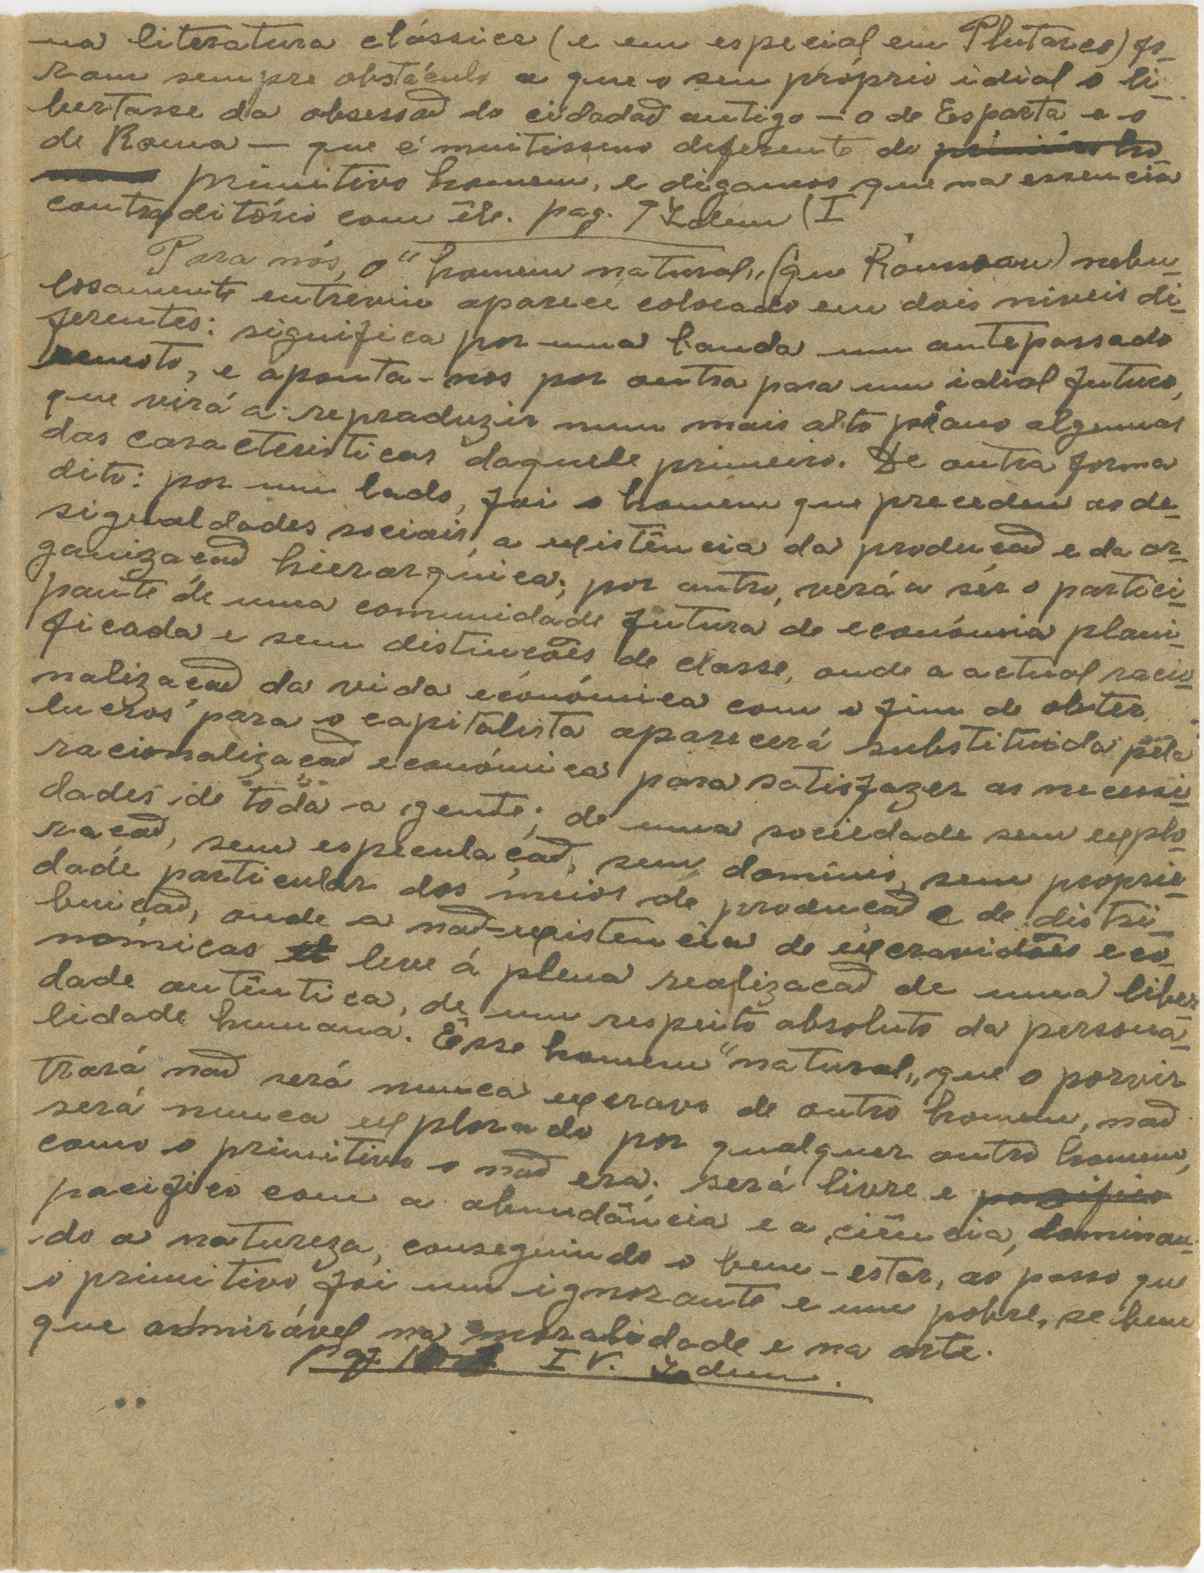 na literatura clássica (e em especial em Plutarco) fo-
ram sempre obstáculo a que o seu próprio idial o li-
bertasse da obsessaõ do cidadaõ antigo — o de Esparta e o
de Roma — que é muitissimo deferente do primeiro ho
primitivo homem, e digamos que na essencia
contraditório com êle. pag. 7 Idem (I
Para nós, o "homem natural,, (que Rousseau) nebu-
losamente entreviu aparece colocado em dois niveis di-
ferentes: significa por uma banda um antepassado
remoto, e aponta-nos por outra para um idial futuro,
que virá a reproduzir num mais alto plano algumas
das caracteristicas daquele primeiro. De outra forma
dito: por um lado, foi o homem que precedeu as de-
sigualdades sociais, a existência da produçaõ e da or-
ganizaçaõ hierarquica; por outro, virá a sêr o partici-
pante de uma comunidade futura de económia plani-
ficada e sem distincões de classe, onde a actual racio-
nalizaçaõ da vida económica com o fim de obter
lucros para o capitalista aparecerá substituida pêla
racionalizaçaõ económica para satisfazer as necessi-
dades de tôda a gente; de uma sociedade sem explo-
raçaõ, sem especulaçaõ, sem dominio, sem proprie-
dade particular dos meios de produçaõ e de distri-
buiçaõ, onde a naõ-existencia de excravidões eco-
nómicas leve á plena realizacaõ de uma liber-
dade autêntica, de um respeito absoluto da persona-
lidade humana. Êsse homem "natural,, que o porvir
trará naõ será nunca excravo de outro homem, naõ
será nunca explorado por qualquer outro homem,
como o primitivo o naõ era; será livre e pacifico
pacifico com a abundância e a ciência, dominan-
do a natureza, conseguindo o bem-estar, ao passo que
o primitivo foi um ignorante e um pobre, se bem
que admirável na moralidade e na arte.
Pag. IV. Idem.